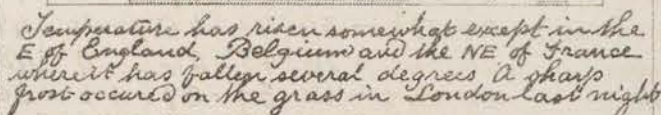 Temperature has risen somewhat except in the
E of England, Belgium and the NE of France
where it has fallen several degrees A sharp
frost occured on the grass in London last night